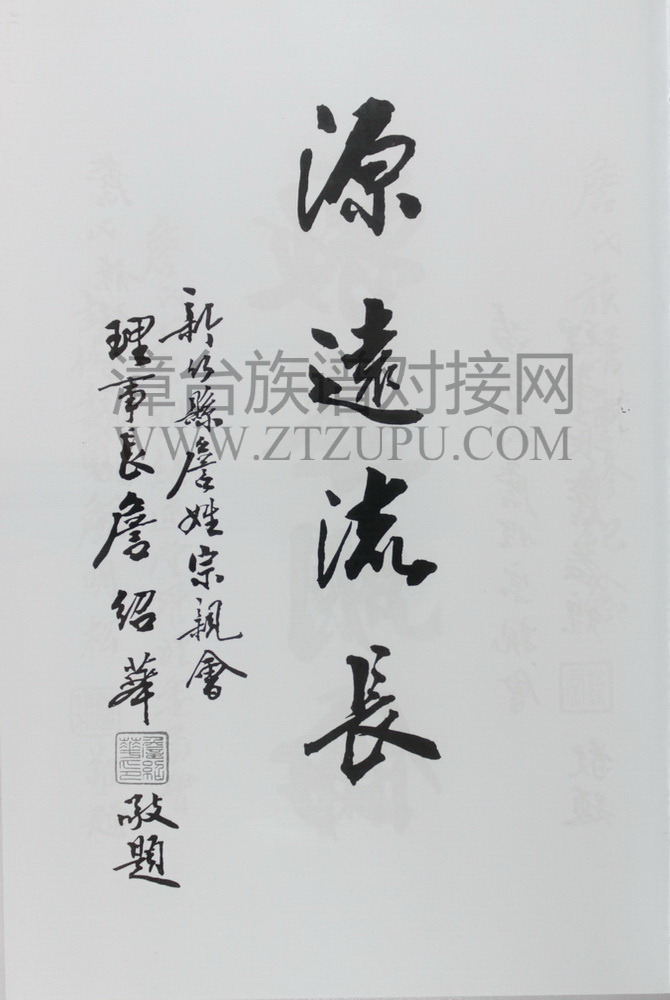 源遠流長
新竹縣詹姓宗親會
理事長詹紹華
敬題
漳台族谱对接网
WWW.ZTZUPU.COM